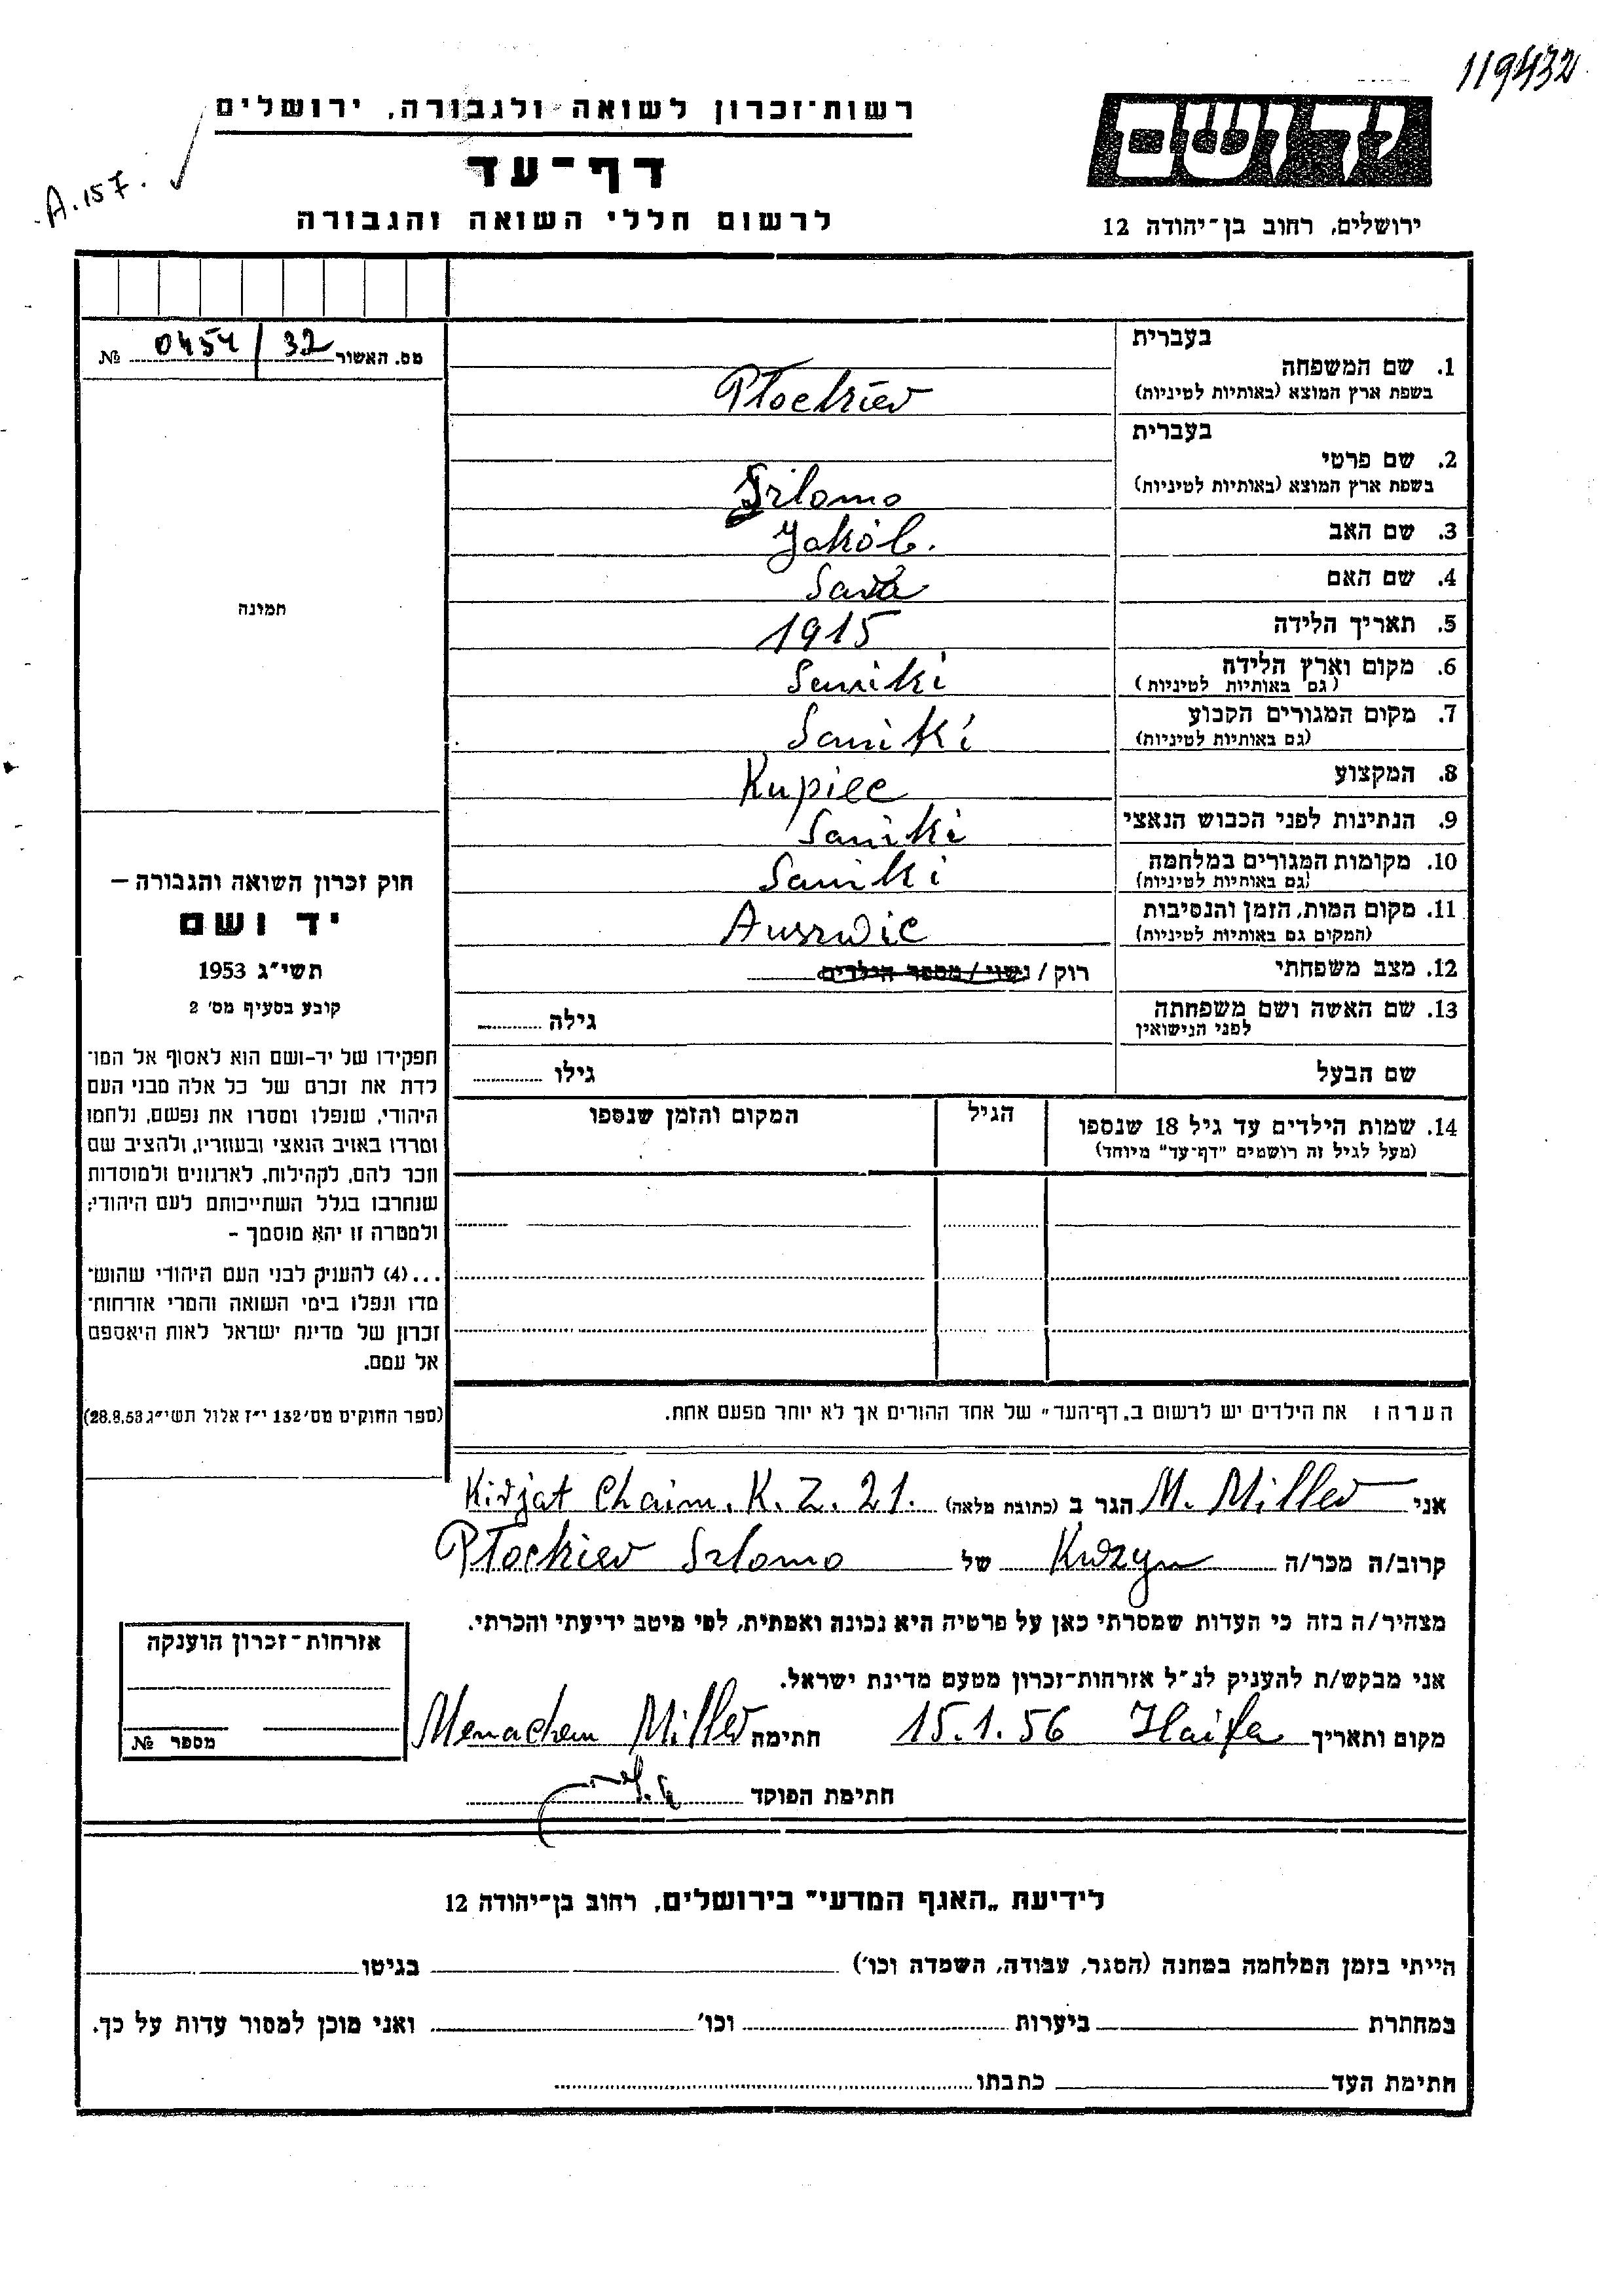 119432
רשות־זכרון לשואה ולגבורה, ירושלים
יד ושם
דף־עד
A. 157.
לרשום חללי השואה והגבורה
ירושלים, רחוב בן־יהודה 12
בעברית
מס. האשור 32 / 0454 №
1. שם המשפחה
בשפת ארץ המוצא (באותיות לטיניות) Płockier
בעברית
2. שם פרטי
בשפת ארץ המוצא (באותיות לטיניות) Szlomo
3. שם האב Jakób.
4. שם האם Sara
תמונה
5. תאריך הלידה 1915
6. מקום וארץ הלידה Saniki
(גם באותיות לטיניות)
7. מקום המגורים הקבוע Saniki
(גם באותיות לטיניות)
8. המקצוע Kupiec
9. הנתינות לפני הכבוש הנאצי Saniki
10. מקומות המגורים במלחמה Saniki
(גם באותיות לטיניות)
11. מקום המות, הזמן והנסיבות Auszwic
(המקום גם באותיות לטיניות)
12. מצב משפחתי רוק / נשוי / מספר הילדים
13. שם האשה ושם משפחתה גילה
לפני הנישואין
שם הבעל גילו
14. שמות הילדים עד גיל 18 שנספו הגיל המקום והזמן שנספו
(מעל לגיל זה רושמים "דף־עד" מיוחד)
חוק זכרון השואה והגבורה –
יד ושם
תשי״ג 1953
קובע בסעיף מס׳ 2
תפקידו של יד-ושם הוא לאסוף אל המו־
לדת את זכרם של כל אלה מבני העם
היהודי, שנפלו ומסרו את נפשם, נלחמו
ומרדו באויב הנאצי ובעוזריו, ולהציב שם
וזכר להם, לקהילות, לארגונים ולמוסדות
שנחרבו בגלל השתייכותם לעם היהודי;
ולמטרה זו יהא מוסמך –
...(4) להעניק לבני העם היהודי שהוש־
מדו ונפלו בימי השואה והמרי אזרחות־
זכרון של מדינת ישראל לאות היאספם
אל עמם.
(ספר החוקים מס׳ 132 י״ז אלול תשי״ג 28.8.53)
הערה: את הילדים יש לרשום ב„דף־העד" של אחד ההורים אך לא יותר מפעם אחת.
אני M. Miller הגר ב (כתובת מלאה) Kirjat Chaim. K. Z. 21.
קרוב/ה מכר/ה Kuzyn של Płockier Szlomo
מצהיר/ה בזה כי העדות שמסרתי כאן על פרטיה היא נכונה ואמתית, לפי מיטב ידיעתי והכרתי.
אני מבקש/ת להעניק לנ״ל אזרחות־זכרון מטעם מדינת ישראל.
מקום ותאריך Haifa 15.1.56 חתימה Menachem Miller
אזרחות־זכרון הוענקה
מספר №
חתימת הפוקד
לידיעת „האגף המדעי" בירושלים, רחוב בן־יהודה 12
הייתי בזמן המלחמה במחנה (הסגר, עבודה, השמדה וכו׳) בגיטו
במחתרת ביערות וכו׳ ואני מוכן למסור עדות על כך.
חתימת העד כתבתו